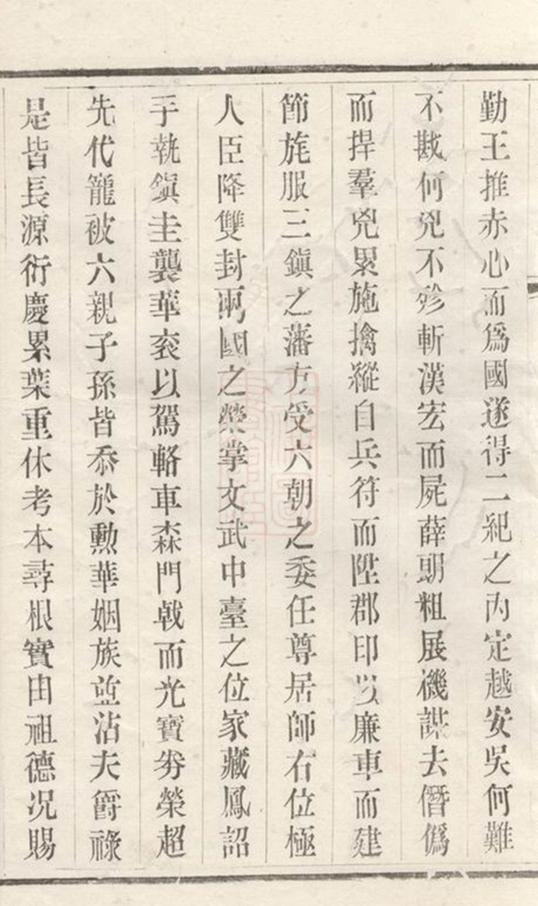 勤王推赤心而爲國遂得二紀之內定越安吳何難
不戡何兇不殄斬漢宏而屍薛朗粗展機謀去僭僞
而捍羣兇累施擒縱自兵符而陞郡印以廉車而建
節旄服三鎭之藩方受六朝之委任尊居師右位極
人臣降雙封兩國之榮掌文武中臺之位家藏鳳詔
手執鎭圭襲華衮以駕輅車森門戟而光寶劵榮超
先代寵被六親子孫皆忝於勲華姻族並沾夫爵祿
是皆長源衍慶累葉重休考本尋根實由祖德况賜